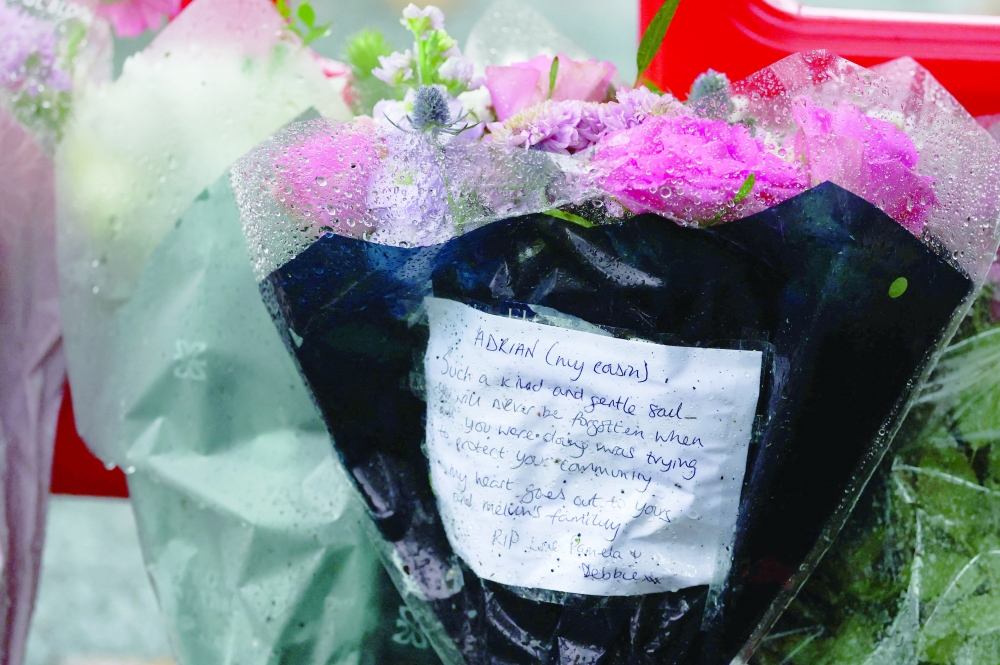 ADRIAN (my cousin)
Such a kind and gentle soul-
will never be forgotten when
you were doing was trying
to protect your community
my heart goes out to yours
and melvin's family
RIP Love Pamela &
Debbie xx